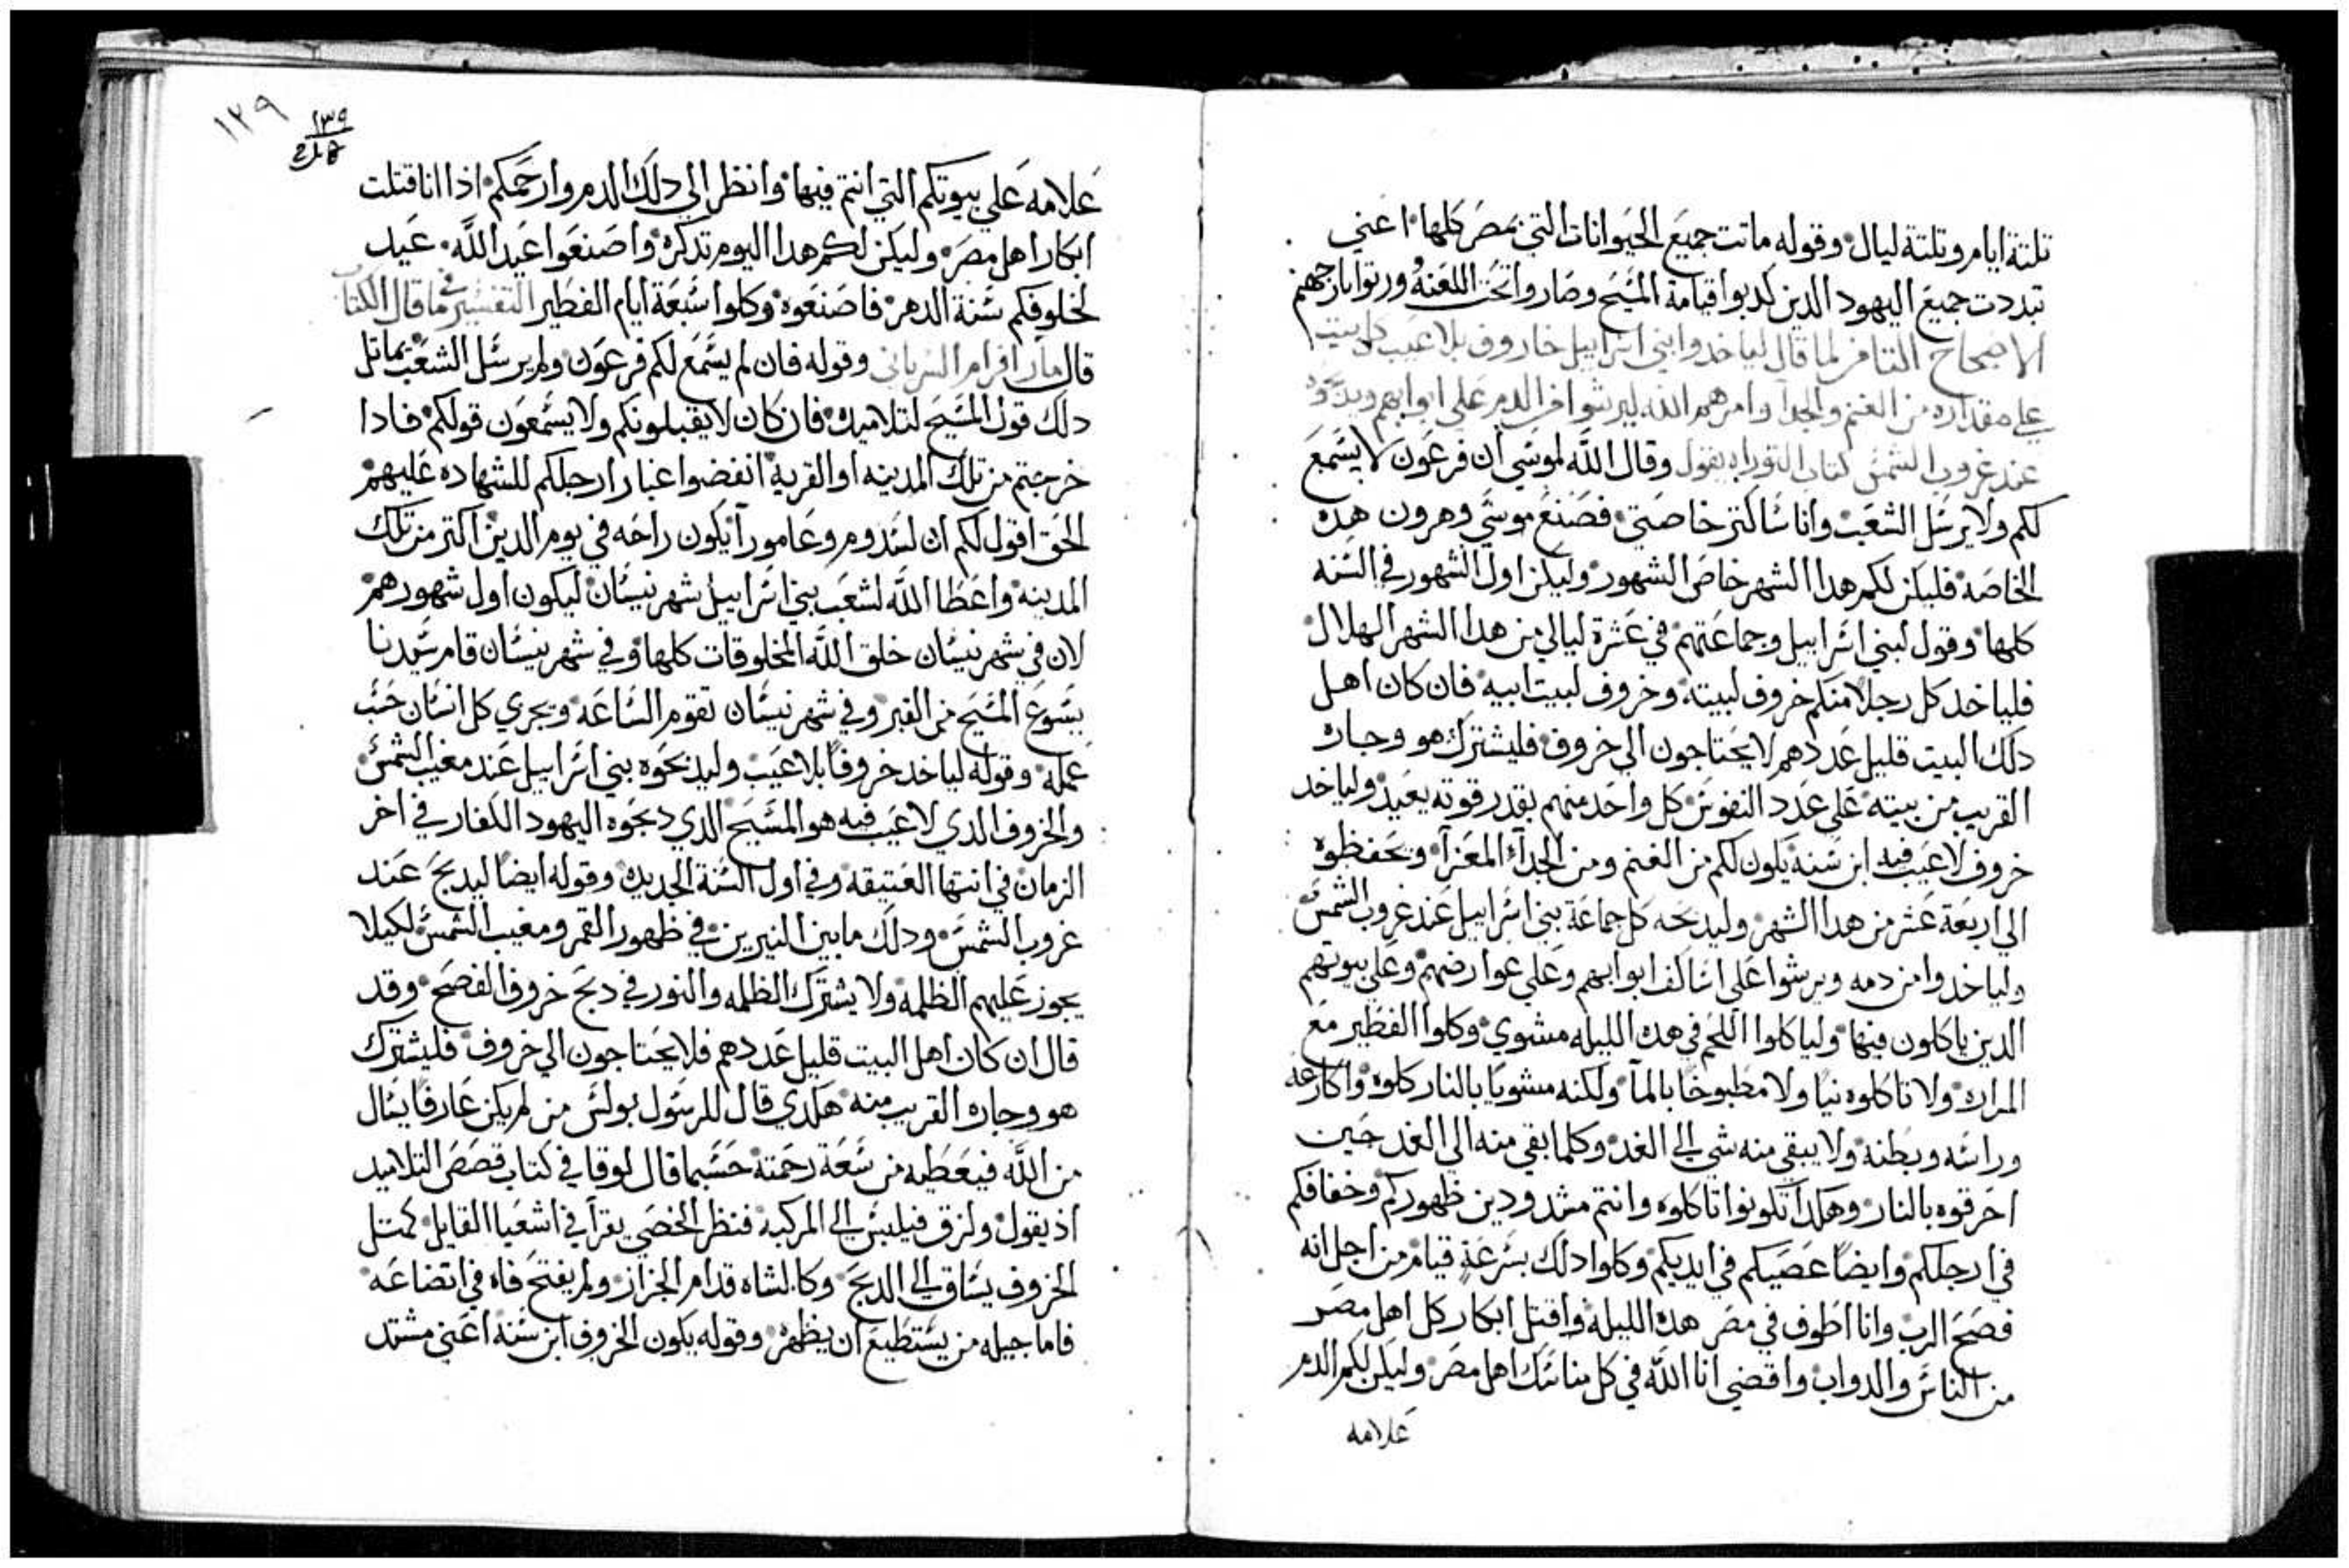 تلتة ايام وتلتة ليال وقوله ماتت جميع الحيوانات التي بمصر كلها اعني
تبددت جميع اليهود الدين كدبوا قيامة المسيح وصاروا تحت اللعنه ورتوا نار جهنم
الاصحاح التامن لما قال لياخدوا بني اسراييل خاروف بلا عيب كل بيت
علي مقداره من الغنم والجدا وامرهم الله ليرشوا من الدم علي ابوابهم
عند غروب الشمس كتاب التوراه يقول وقال الله لموسي ان فرعون لا يسمع
لكم ولا يرسل الشعب وانا ساكتر خاصتي فصنع موسي وهرون هده
الخاصه فليكن لكم هدا الشهر خاص الشهور وليكن اول الشهور في السنه
كلها وقول لبني اسراييل وجماعتهم في عشرة ليالي من هدا الشهر الهلال
فلياخد كل رجلا منكم خروف لبيته وخروف لبيت ابيه فان كان اهل
دلك البيت قليل عددهم لا يحتاجون الي خروف فليشترك هو وجاره
القريب من بيته علي عدد النفوس كل واحد منهم بقدر قوته يعيد ولياخد
خروف لا عيب فيه ابن سنه يكون لكم من الغنم ومن الجدآء المعزآ ويحفظوه
الي اربعة عشر من هدا الشهر وليدبحه كل جماعة بني اسراييل عند غروب الشمس
ولياخدوا من دمه ويرشوا علي اساكف ابوابهم وعلي عوارضهم وعلي بيوتهم
الدين ياكلون فيها ولياكلوا اللحم في هده الليله مشوي وكلوا الفطير مع
المراره ولا تاكلوه نيا ولا مطبوخا بالمآ ولكنه مشويا بالنار كلوه واكارعه
وراسه وبطنه ولا يبقي منه شي الي الغد وكلما بقي منه الي الغد حين
احرقوه بالنار وهكدا تكونوا تاكلوه وانتم مشدودين ظهوركم وخفافكم
في ارجلكم وايضا عصيكم في ايديكم وكلوا دلك بسرعة قيام من اجل انه
فصح الرب وانا اطوف في مصر هده الليله واقتل ابكار كل اهل مصر
من الناس والدواب واقضي انا الله في كل مناسك اهل مصر وليكن لكم الدم
علامه
١٢٩
١٣٩
علامه علي بيوتكم التي انتم فيها وانظر الي دلك الدم وارحمكم ادا انا قتلت
ابكار اهل مصر وليكن لكم هدا اليوم تدكره واصنعوا عيد الله عيد
لخلوفكم سنة الدهر فاصنعوه وكلوا سبعة ايام الفطير التفسير في ما قال الكتاب
قال مار افرام السرياني وقوله فان لم يسمع لكم فرعون ولم يرسل الشعب يماتل
دلك قول المسيح لتلاميده فان كان لا يقبلونكم ولا يسمعون قولكم فادا
خرجتم من تلك المدينه او القرية انفضوا غبار ارجلكم للشهاده عليهم
الحق اقول لكم ان لسدوم وعامورا يكون راحه في يوم الدين اكتر من تلك
المدينه واعطا الله لشعب بني اسراييل شهر نيسان ليكون اول شهورهم
لان في شهر نيسان خلق الله المخلوقات كلها وفي شهر نيسان قام سيدنا
يسوع المسيح من القبر وفي شهر نيسان تقوم الساعه ويجري كل انسان حسب
عمله وقوله لياخد خروفا بلا عيب وليدبحوه بني اسراييل عند مغيب الشمس
والخروف الدي لا عيب فيه هو المسيح الدي دبحوه اليهود الكفار في اخر
الزمان في انتها العتيقه وفي اول السنة الجديده وقوله ايضا ليدبح عند
غروب الشمس ودلك ما بين النيرين في ظهور القمر ومغيب الشمس لكيلا
يجوز عليهم الظلمه ولا يشترك الظلمه والنور في دبح خروف الفصح وقد
قال ان كان اهل البيت قليل عددهم فلا يحتاجون الي خروف فليشترك
هو وجاره القريب منه هكدي قال للرسول بولس من لم يكن عارفا يسال
من الله فيعطيه من سعة رحمته حسبما قال لوقا في كتاب قصص التلاميد
اد يقول ولزق فيلبس الي المركبه فنظر الخصي يقرا في اشعيا القايل كمتل
الخروف يساق الي الدبح وكالشاه قدام الجزاز ولم يفتح فاه في اتضاعه
فاما جيله من يستطيع ان يظهره وقوله يكون الخروف ابن سنه اعني مشتد